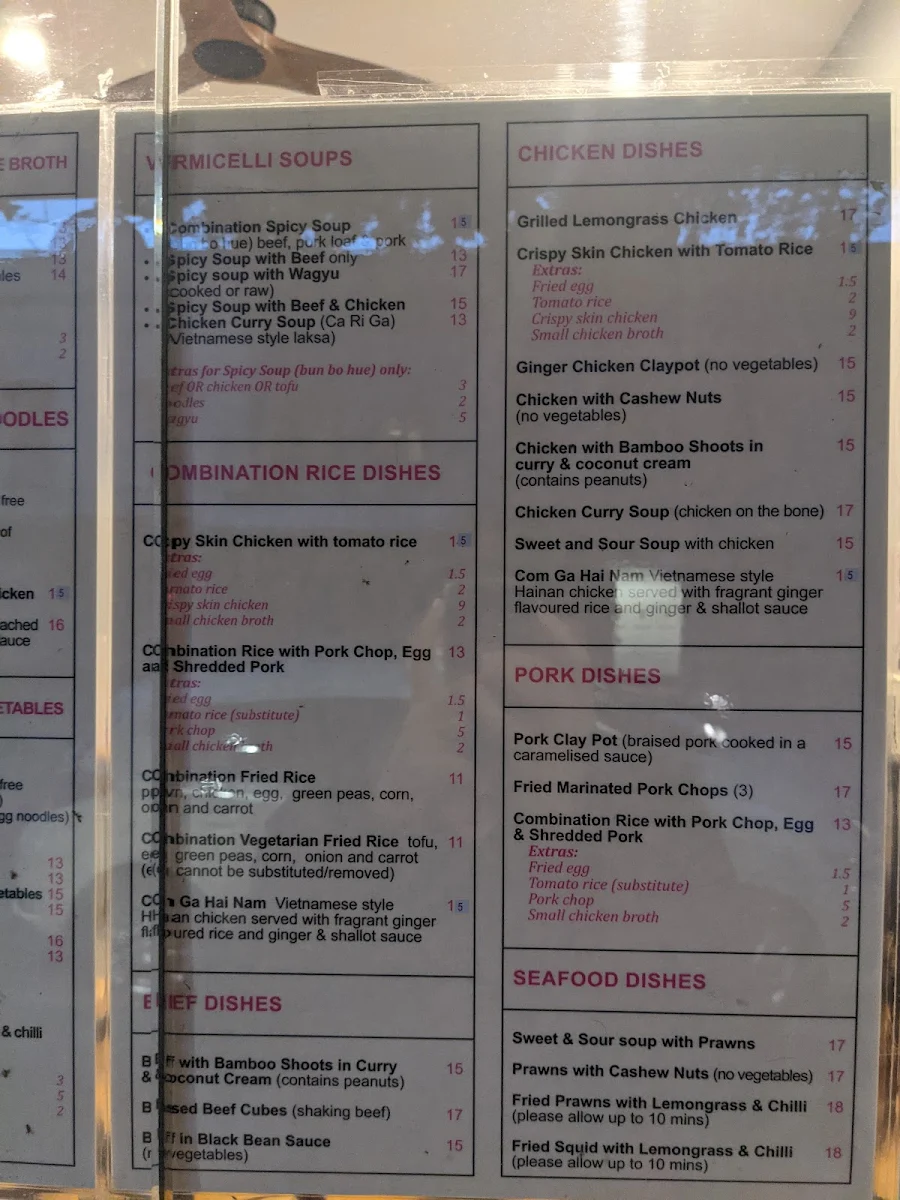 BROTH
13
13
13
14
3
2
free
of
15
16
VERMICELLI SOUPS
Combination Spicy Soup 15
hue) beef, pork loaf & pork
Spicy Soup with Beef only 13
Spicy soup with Wagyu 17
(cooked or raw)
Spicy Soup with Beef & Chicken 15
Chicken Curry Soup (Ca Ri Ga) 13
(Vietnamese style laksa)
Extras for Spicy Soup (bun bo hue) only:
Beef OR chicken OR tofu 3
Noodles 2
Wagyu 5
COMBINATION RICE DISHES
Crispy Skin Chicken with tomato rice 15
Extras:
Fried egg 1.5
Tomato rice 2
Crispy skin chicken 9
Small chicken broth 2
Combination Rice with Pork Chop, Egg 13
and Shredded Pork
Extras:
Fried egg 1.5
Tomato rice (substitute) 1
Pork chop 5
Small chicken broth 2
Combination Fried Rice 11
prawn, chicken, egg, green peas, corn,
onion and carrot
Combination Vegetarian Fried Rice tofu, 11
egg, green peas, corn, onion and carrot
(egg cannot be substituted/removed)
Com Ga Hai Nam Vietnamese style 15
Hainan chicken served with fragrant ginger
flavoured rice and ginger & shallot sauce
BEEF DISHES
Beef with Bamboo Shoots in Curry 15
& Coconut Cream (contains peanuts)
sed Beef Cubes (shaking beef) 17
Beef in Black Bean Sauce 15
vegetables)
CHICKEN DISHES
Grilled Lemongrass Chicken 17
Crispy Skin Chicken with Tomato Rice 15
Extras:
Fried egg 1.5
Tomato rice 2
Crispy skin chicken 9
Small chicken broth 2
Ginger Chicken Claypot (no vegetables) 15
Chicken with Cashew Nuts 15
(no vegetables)
Chicken with Bamboo Shoots in 15
curry & coconut cream
(contains peanuts)
Chicken Curry Soup (chicken on the bone) 17
Sweet and Sour Soup with chicken 15
Com Ga Hai Nam Vietnamese style 15
Hainan chicken served with fragrant ginger
flavoured rice and ginger & shallot sauce
PORK DISHES
Pork Clay Pot (braised pork cooked in a 15
caramelised sauce)
Fried Marinated Pork Chops (3) 17
Combination Rice with Pork Chop, Egg 13
& Shredded Pork
Extras:
Fried egg 1.5
Tomato rice (substitute) 1
Pork chop 5
Small chicken broth 2
SEAFOOD DISHES
Sweet & Sour soup with Prawns 17
Prawns with Cashew Nuts (no vegetables) 17
Fried Prawns with Lemongrass & Chilli 18
(please allow up to 10 mins)
Fried Squid with Lemongrass & Chilli 18
(please allow up to 10 mins)